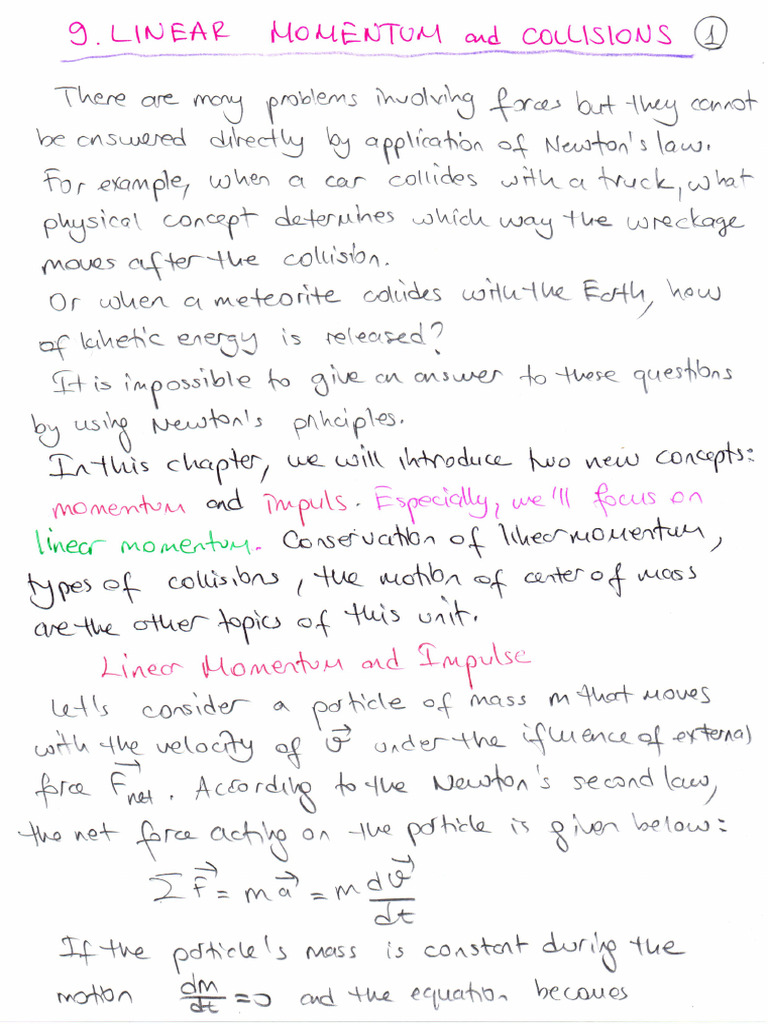 9. LINEAR MOMENTUM and COLLISIONS 1
There are many problems involving forces but they cannot
be answered directly by application of Newton's law.
For example, when a car collides with a truck, what
physical concept determines which way the wreckage
moves after the collision.
Or when a meteorite collides with the Earth, how
of kinetic energy is released?
It is impossible to give an answer to these questions
by using Newton's principles.
In this chapter, we will introduce two new concepts:
momentum and impuls. Especially, we'll focus on
linear momentum. Conservation of linear momentum,
types of collisions, the motion of center of mass
are the other topics of this unit.
Linear Momentum and Impulse
Let's consider a particle of mass m that moves
with the velocity of v⃗ under the ifluence of external
force F⃗net. According to the Newton's second law,
the net force acting on the particle is given below:
ΣF⃗ = ma⃗ = m dv⃗/dt
If the particle's mass is constant during the
motion dm/dt = 0 and the equation becomes